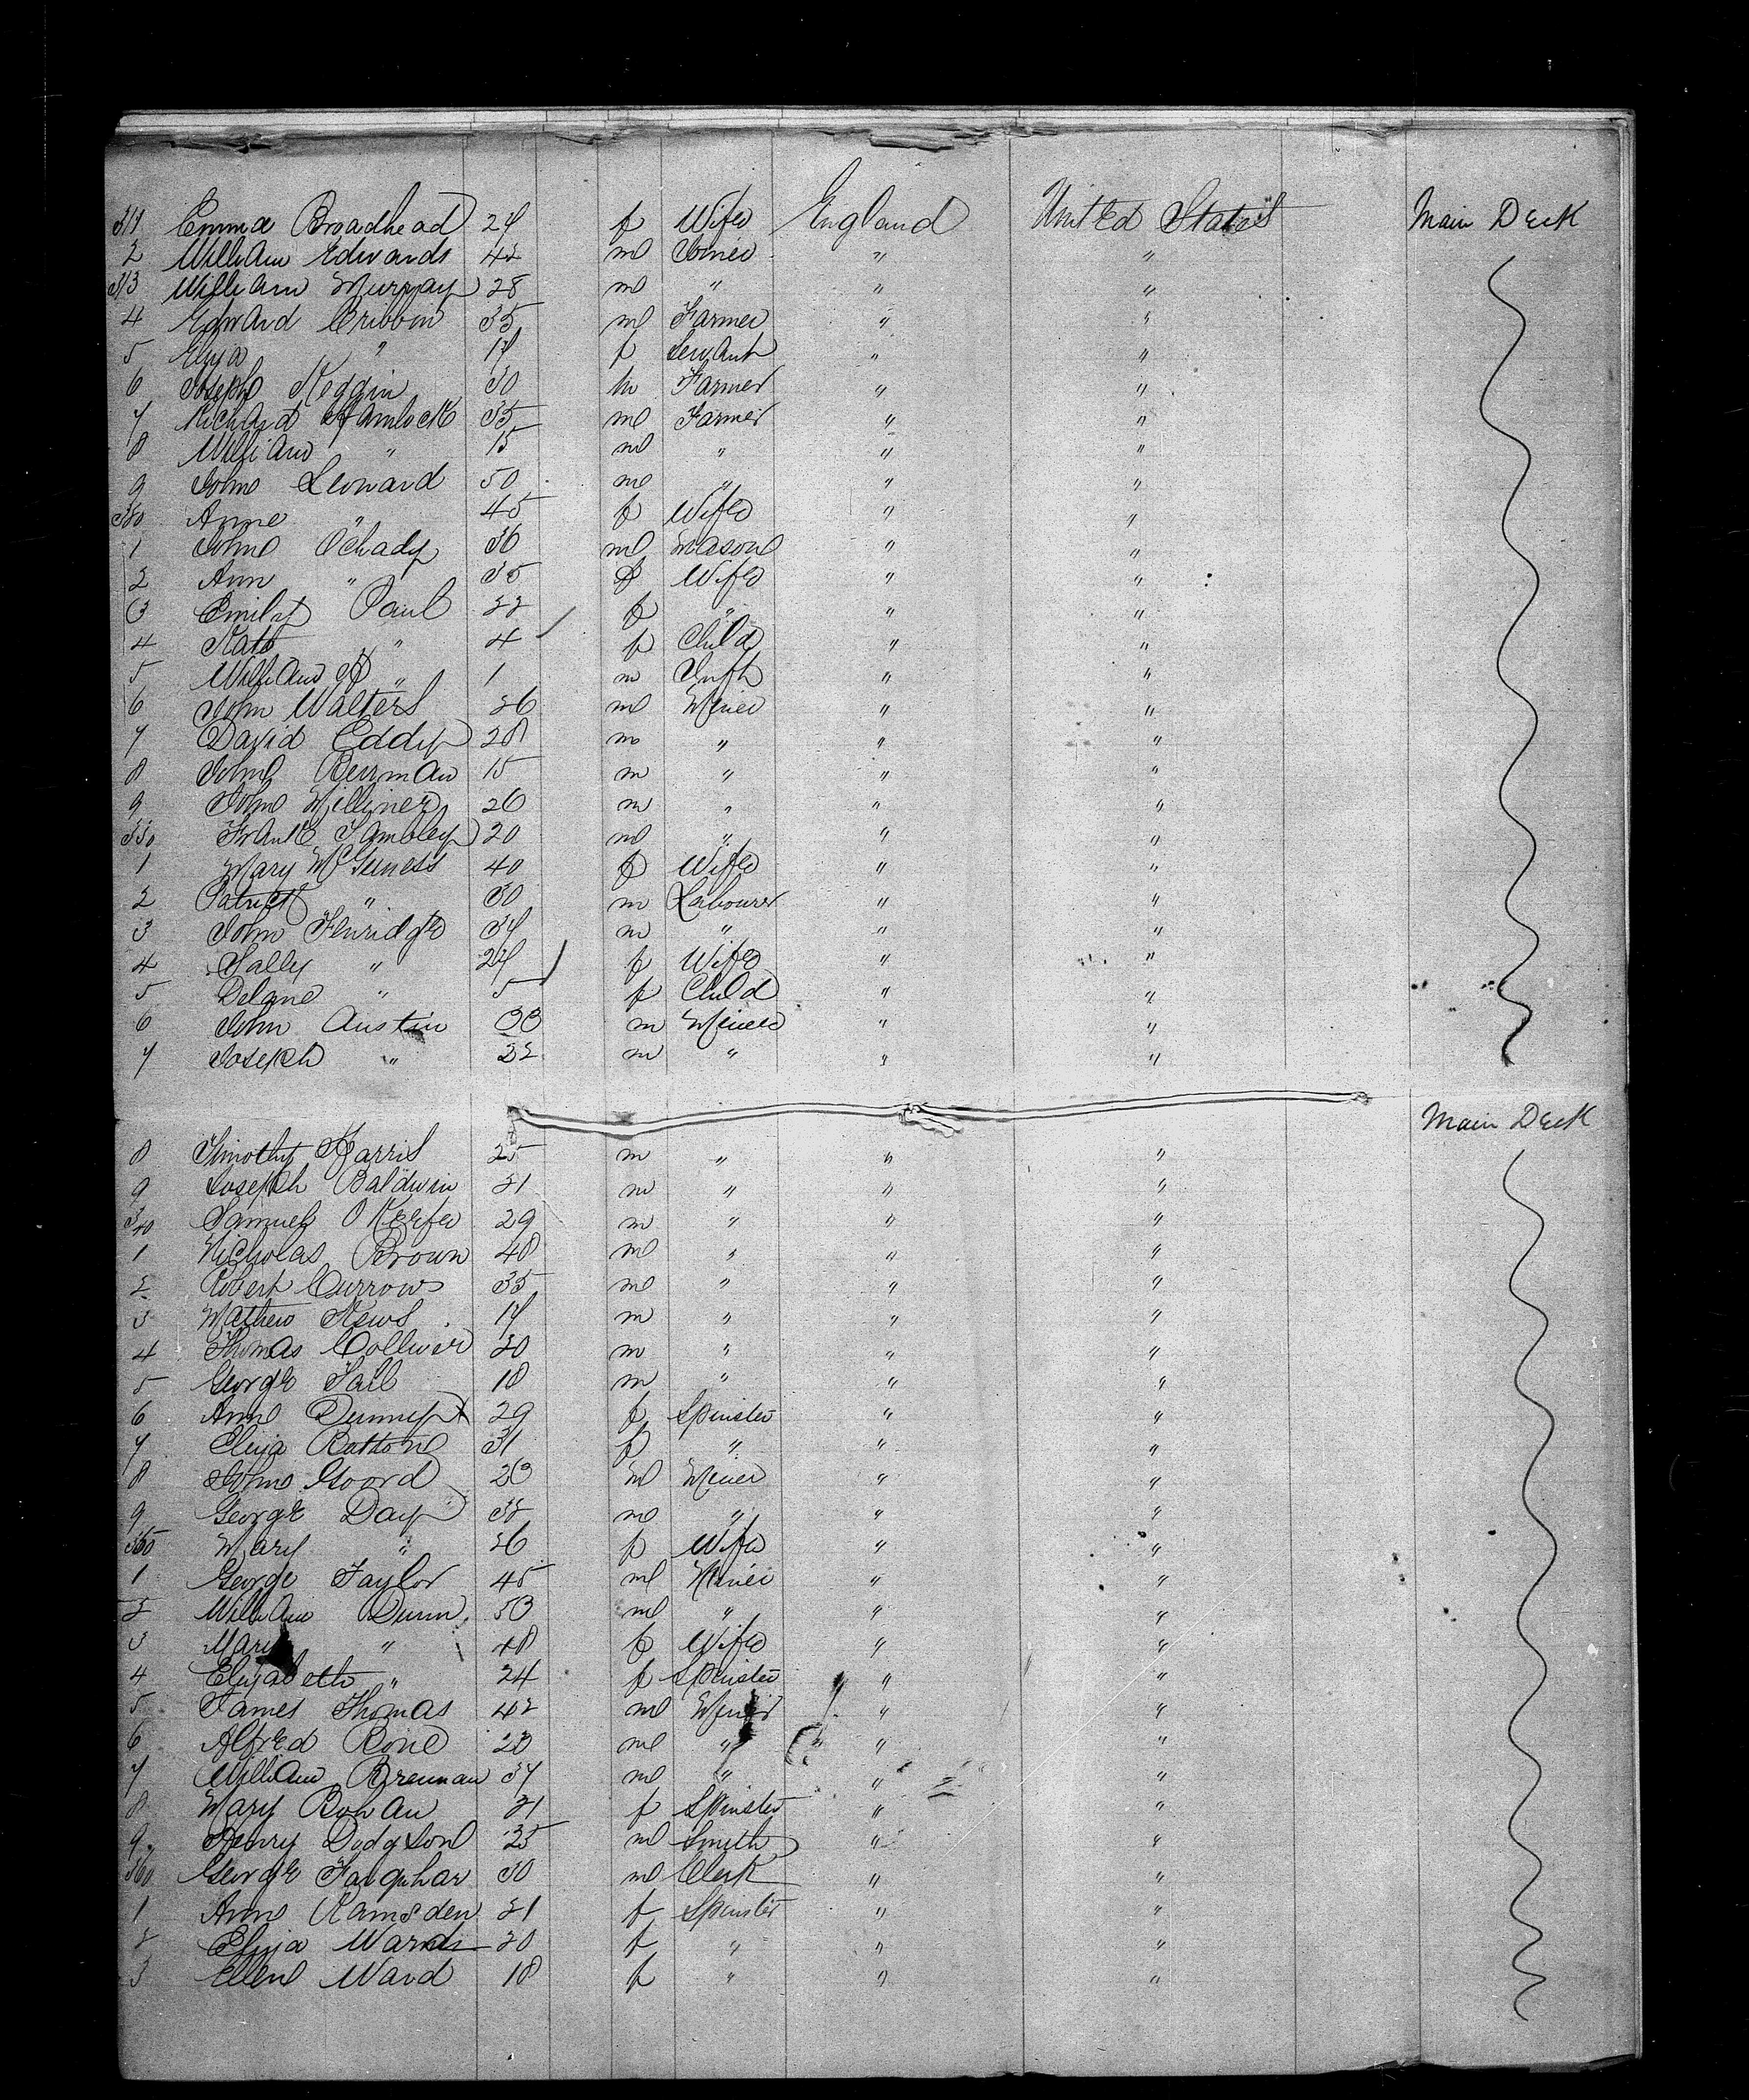 311 Emma Broadhead 24 f Wife England United States Main Deck
2 William Edwards 42 m Joiner " "
313 William Murray 28 m " " "
4 Edward Cribbin 35 m Farmer " "
5 Eliza " 17 f Servant " "
6 Joseph Keggin 30 m Farmer " "
7 Richard Hamlock 35 m Farmer " "
8 William " 15 m " " "
9 John Leonard 50 m " " "
320 Anne " 45 f Wife " "
1 John 36 m Mason " "
2 Ann " 35 f Wife " "
3 Emily Paul 22 f " " "
4 Kate " 4 f Child " "
5 William H " 1 m Inft " "
6 John Walters 26 m Miner " "
7 David Eddy 28 m " " "
8 John Berrman 15 m " " "
9 John Williner 26 m " " "
330 Frank Tambley 20 m " " "
1 Mary McGuness 40 f Wife " "
2 Patrick " 30 m Labourer " "
3 John 34 m " " "
4 Sally " 24 f Wife " "
5 " 5 f Child " "
6 John Austin 33 m Miner " "
7 Joseph " 22 m " " "
Main Deck
8 Timothy Harris 25 m " " "
9 Joseph Baldwin 21 m " " "
340 Samuel OKeefe 29 m " " "
1 Nicholas Brown 48 m " " "
2 Robert Currow 35 m " " "
3 Mathew News 17 m " " "
4 Thomas Colliver 20 m " " "
5 George Tail 18 m " " "
6 Anne Dunney 29 f Spinster " "
7 Eliza Bottone 31 f " " "
8 John Goord 23 m Miner " "
9 George Day 32 m " " "
350 Mary " 26 f Wife " "
1 George Taylor 45 m Miner " "
2 William Dunn 53 m " " "
3 Mary " 48 f Wife " "
4 Elizabeth " 24 f Spinster " "
5 James Thomas 42 m Miner " "
6 Alfred Rone 23 m " " "
7 William Brennan 37 m " " "
8 Mary Bohan 21 f Spinster " "
9 Henry Dodgson 25 m Smith " "
360 George Farquhar 30 m Clerk " "
1 Anne Ramsden 21 f Spinster " "
2 Eliza Ward 20 f " " "
3 Ellen Ward 18 f " " "